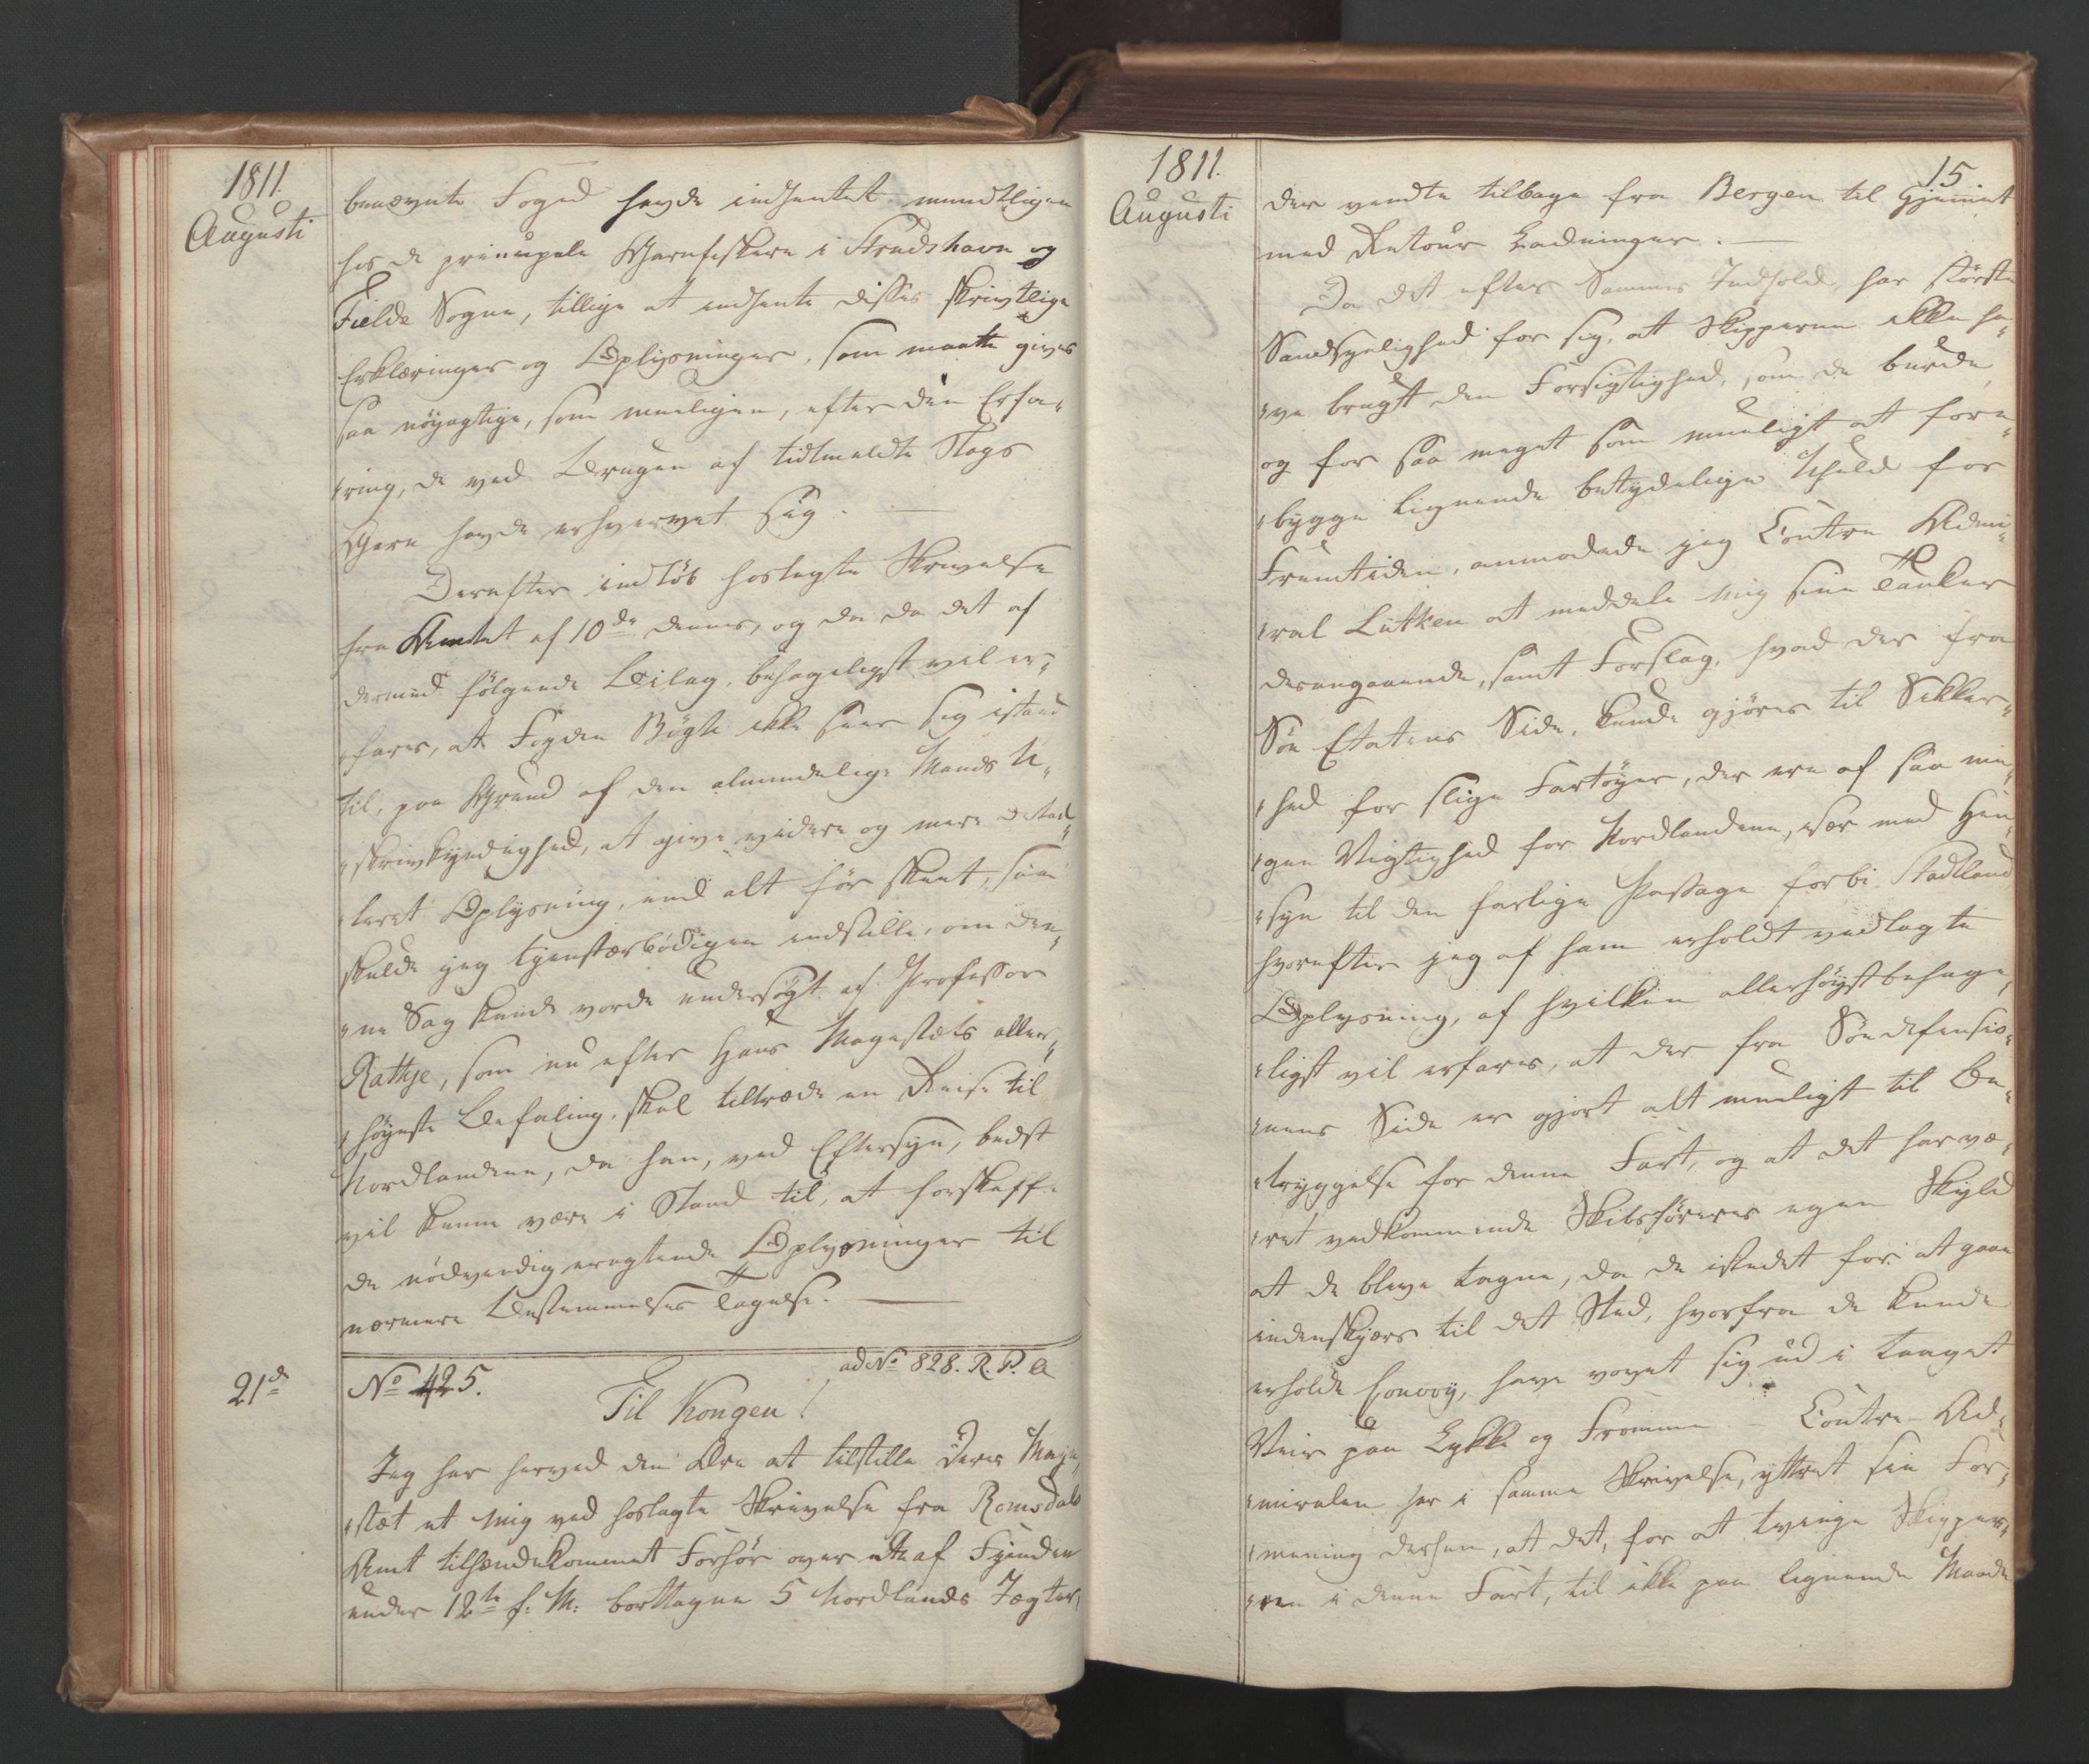 1811.
Augusti
benævnte Foged havde indhentet mundtligen
hos de principale Garnfiskere i Strudshavn og
Fielde Sogne, tillige at indhente disses skrivtlige
Erklæringer og Oplysninger, som maatte gives
saa nöyagtige, som mueligen, efter den Erfa„
„ring, de ved Brugen af tidtmeldte Slags
Garn havde erhvervet sig. —
Derefter indlöb hoslagte Skrivelse
fra Amtet af 10de dennes, og da da det af
dermed fölgende Bilag, behageligst vil er„
„fares, at Fogden Bögh ikke seer sig istand
til, paa Grund af den almindelige Mands U„
„skrivkyndighed, at give videre og mere detail„
„leret Oplysning, end alt för skeet, saa
skulde jeg tjenstærbödigen indstille, om den„
„ne Sag kunde vorde undersögt af Professor
Rathje, som nu efter Hans Mayestæts aller„
„höyeste Befaling, skal tiltræde en Reise til
Nordlandene, da han, ved Eftersyn, bedst
vil kunne være i Stand til, at forskaffe
de nödvendig eragtende Oplysninger til
nærmere Bestemmelses Tagelse. —
21de
No 425.
ad No 828. R. P. a
Til Kongen!
Jeg har herved den Ære at tilstille Deres Maje„
„stæt et mig ved hoslagte Skrivelse fra Romsdals
Amt tilhændekommet Forhör over de af Fienden
under 12te f: M: borttagne 5 Nordlands Jægter,
1811.
Augusti
15
der vendte tilbage fra Bergen til Hjemmet
med Retour Ladninger. —
Da det efter Sammes Indhold, har störste
Sandsynlighed for sig, at Skipperne ikke ha„
„ve brugt den Forsigtighed, som de burde,
og for saa meget som mueligt at fore„
„bygge lignende betydelige Uheld for
Fremtiden, anmodede jeg Contre Admi„
„ral Lütken at meddele mig sine Tanker
desangaaende, samt Forslag, hvad der fra
Söe Etatens Side, kunde gjöres til Sikker„
„hed for slige Fartöyer, der ere af saa me„
„gen Vigtighed for Nordlandene, især med Hen„
„syn til den farlige Passage forbi Stadtland,
hvorefter jeg af ham erholdt vedlagte
Oplysning, af hvilken allerhöyst behage„
„ligst vil erfares, at der fra Söedefensio„
„nens Side er gjort alt mueligt til Be„
„tryggelse for denne Fart, og at det har væ„
„ret vedkommende Skibsföreres egen Skyld
at de bleve tagne, da de istedet for at gaae
indenskjærs til det Sted, hvorfra de kunde
erholde Convoy, have vovet sig ud i taaget
Veir paa Lykke og Fromme — Contre-Ad„
„miralen har i samme Skrivelse, yttret sin For„
„mening derhen, at det, for at tvinge Skipper„
„ne i denne Fart, til ikke paa lignende Maade